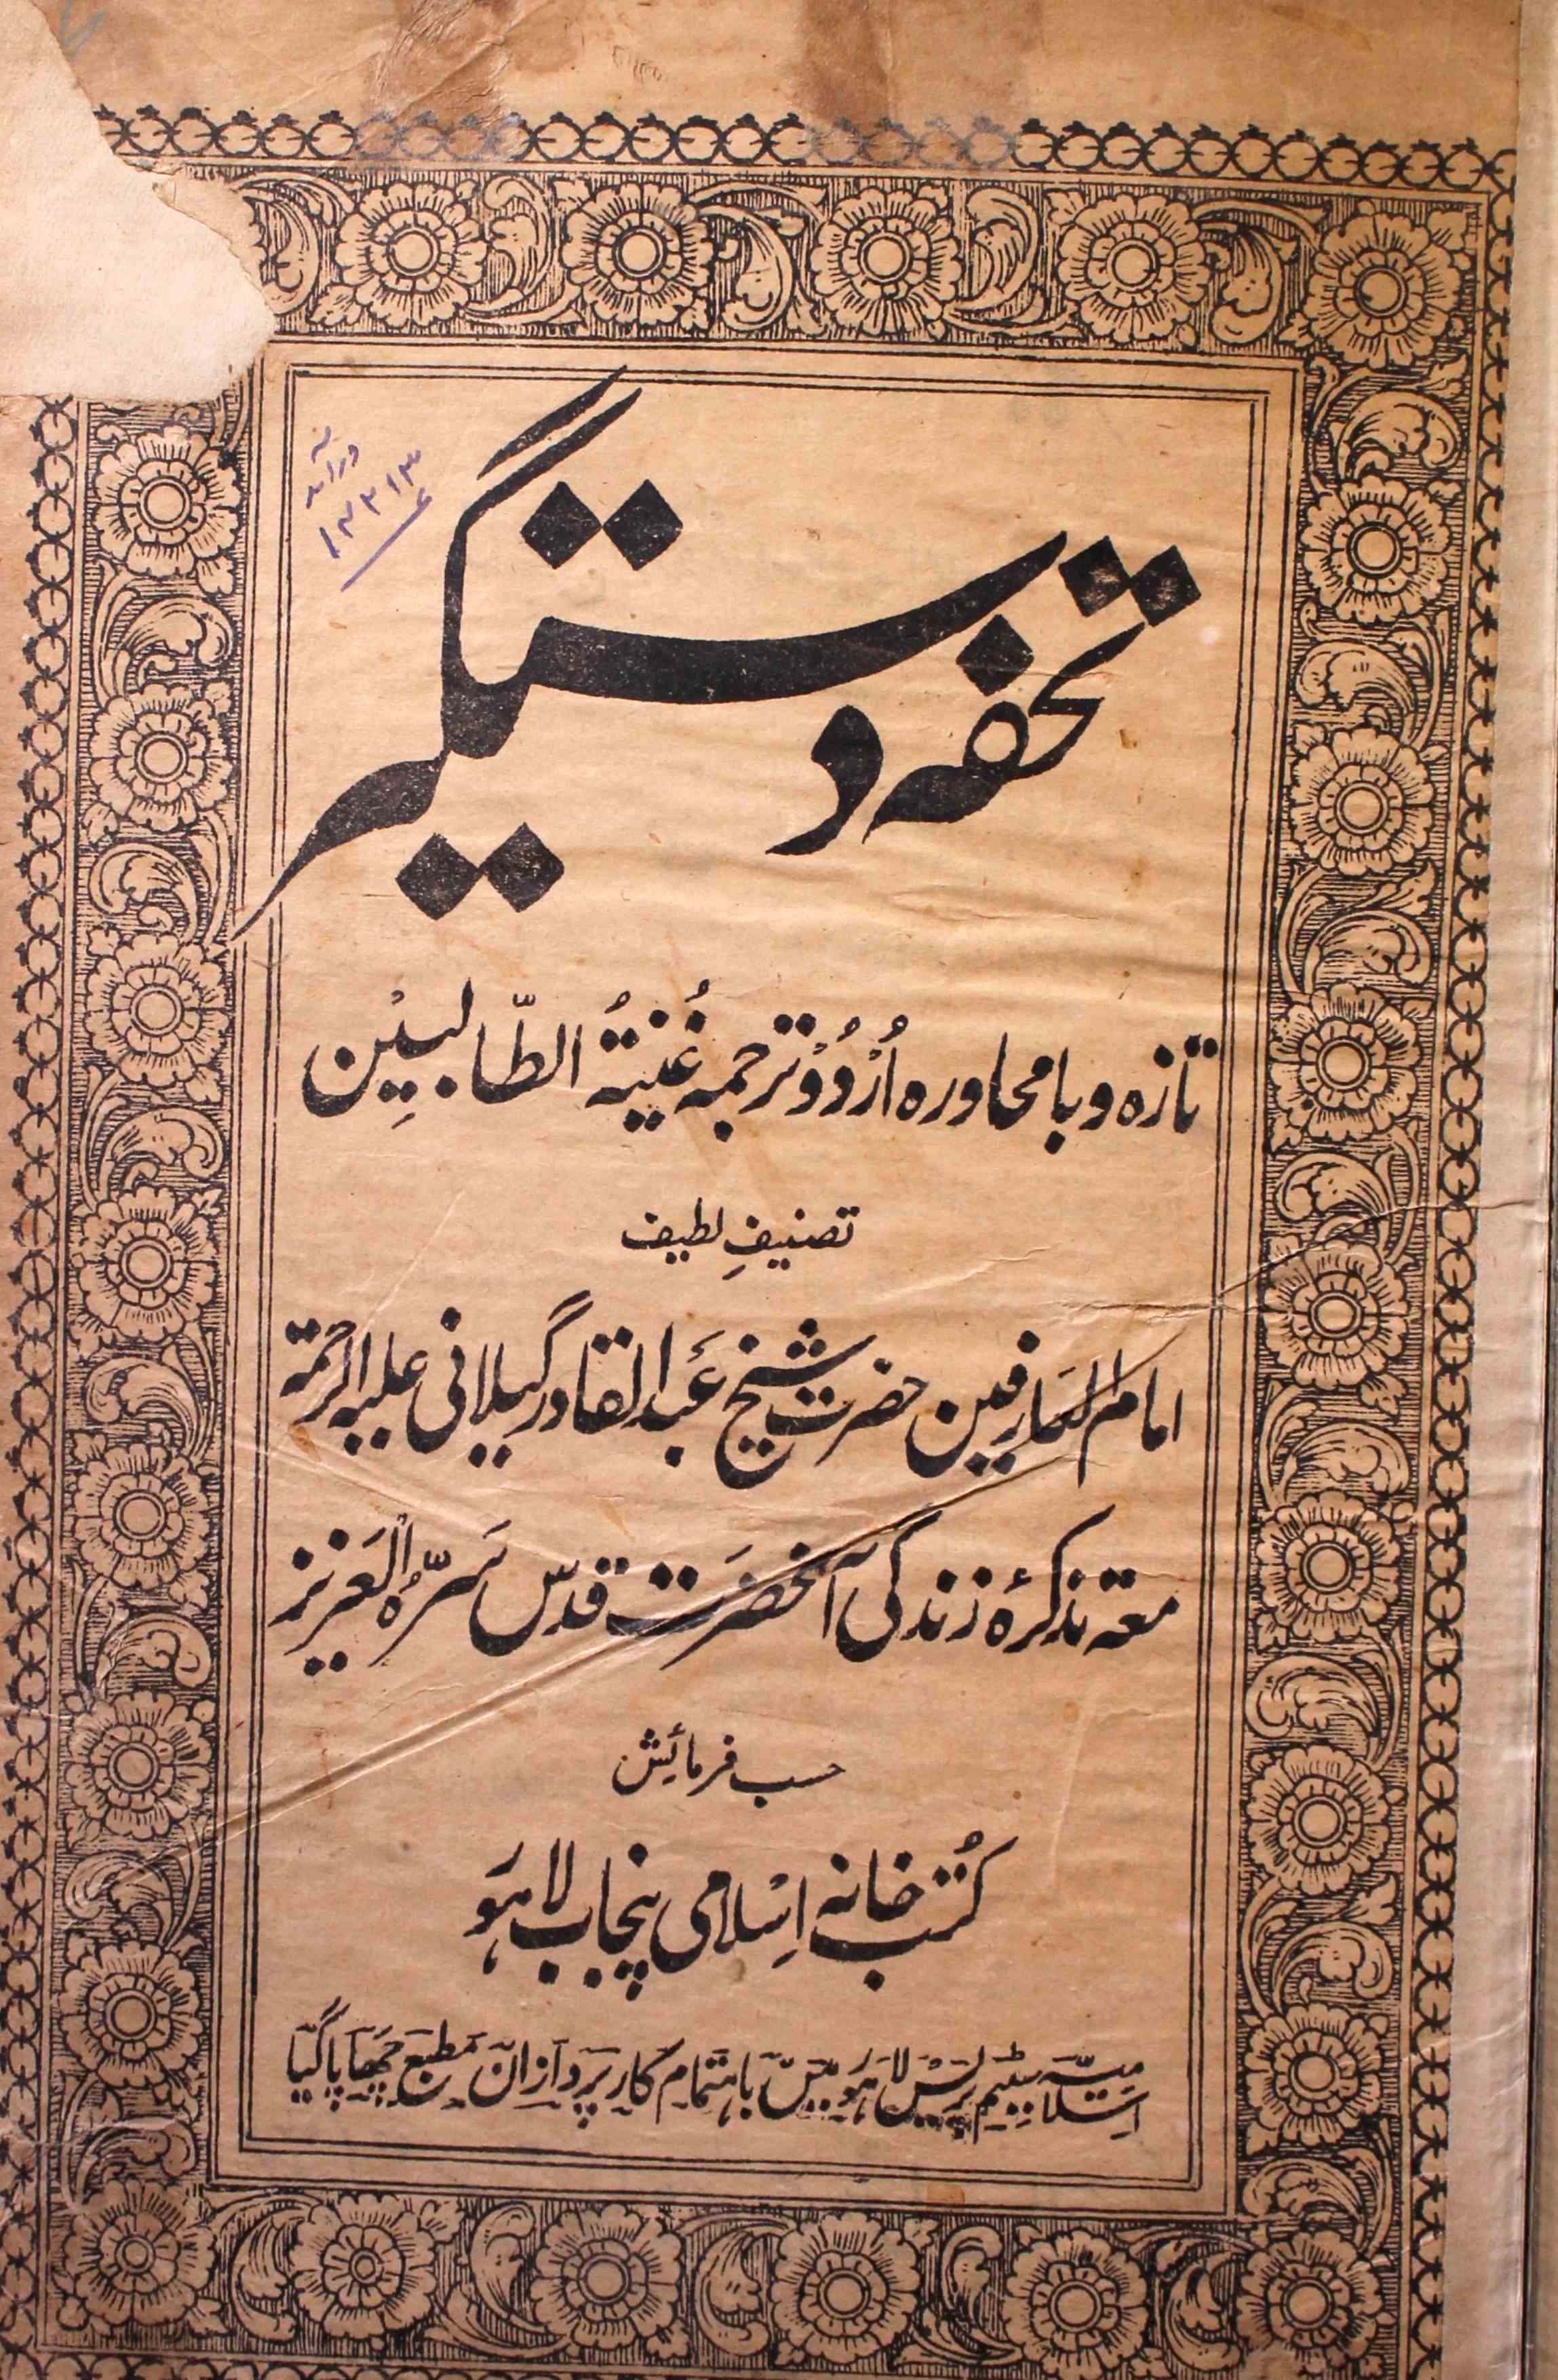 تحفہ دستگیر
تازہ و بامحاورہ اُرْدُوْ ترجمہ غُنیۃُ الطّالبیْن
تصنیفِ لطیف
امام العَارفین حضرت شیخ عَبدالقادر گیلانی علیہ الرحمۃ
معہ تذکرۂ زندگی آنحضرَت قدس سرّہُ العَزیز
حسب فرمائش
کُتب خانہ اِسْلامی پنجاب لاہوَ
اسلامیہ سٹیم پریس لاہور میں باہتمام کارپردازان مطبع چھاپا گیا